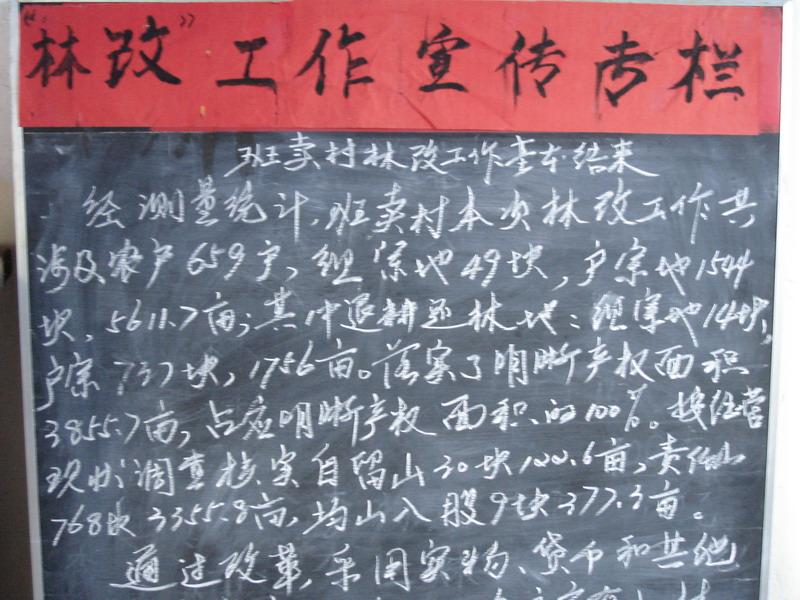 “林改”工作宣传专栏
班卖村林改工作基本结束
经测量统计,班卖村本次林改工作共
涉及农户659户,组宗地49块,户宗地1544
块,5611.7亩;其中退耕还林地:组宗地14块,
户宗737块,1756亩。落实了明晰产权面积
3855.7亩,占应明晰产权面积的100%。按经营
现状调查核实自留山30块122.6亩,责任山
768块3355.8亩,均山入股9块377.3亩。
通过改革,采用实物、货币和其他